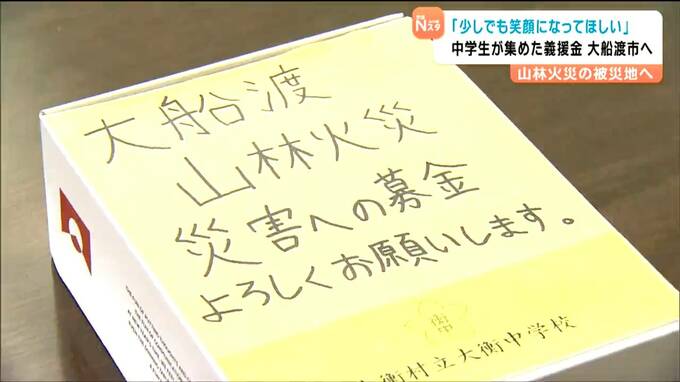 Nスタ
「少しでも笑顔になってほしい」
中学生が集めた義援金 大船渡市へ
山林火災の被災地へ
大船渡
山林火災
災害への募金
よろしくお願いします。
衡村立大衡中学校